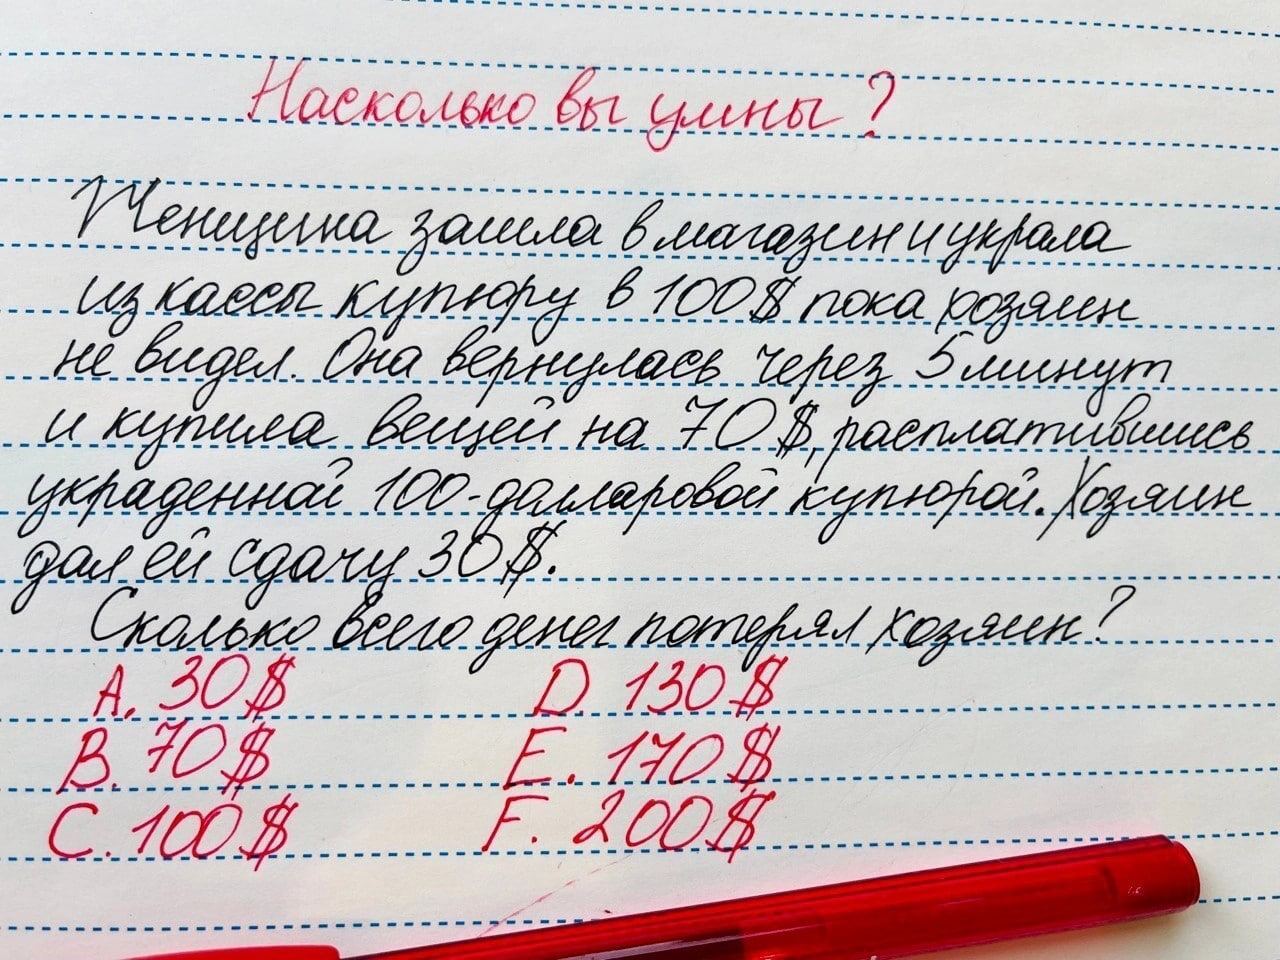 Насколько вы умны?
Женщина зашла в магазин и украла
из кассы купюру в 100$ пока хозяин
не видел. Она вернулась через 5 минут
и купила вещей на 70$, расплатившись
украденной 100-долларовой купюрой. Хозяин
дал ей сдачу 30$.
Сколько всего денег потерял хозяин?
A. 30$ D. 130$
B. 70$ E. 170$
C. 100$ F. 200$